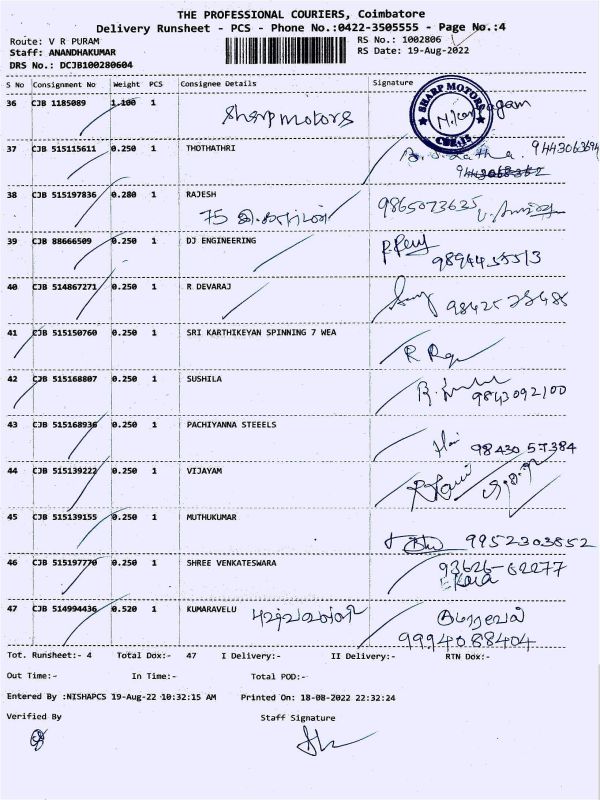 THE PROFESSIONAL COURIERS, Coimbatore
Delivery Runsheet - PCS - Phone No.:0422-3505555 - Page No.:4
Route: V R PURAM
RS No.: 1002806
Staff: ANANDHAKUMAR
RS Date: 19-Aug-2022
DRS No.: DCJB100280604
S No Consignment No Weight PCS Consignee Details Signature
36 CJB 1185089 1.100 1 Sharp motors
SHARP MOTORS
CBE-15
37 CJB 515115611 0.250 1 THOTHATHRI
38 CJB 515197836 0.280 1 RAJESH 9865073635
75
39 CJB 88666509 0.250 1 DJ ENGINEERING
9894455513
40 CJB 514867271 0.250 1 R DEVARAJ
41 CJB 515150760 0.250 1 SRI KARTHIKEYAN SPINNING 7 WEA
42 CJB 515168807 0.250 1 SUSHILA
9843092100
43 CJB 515168936 0.250 1 PACHIYANNA STEEELS
98430 57384
44 CJB 515139222 0.250 1 VIJAYAM
45 CJB 515139155 0.250 1 MUTHUKUMAR
9952303852
46 CJB 515197770 0.250 1 SHREE VENKATESWARA 93626-62277
47 CJB 514994436 0.520 1 KUMARAVELU
9994088404
Tot. Runsheet:- 4 Total Dox:- 47 I Delivery:- II Delivery:- RTN Dox:-
Out Time:- In Time:- Total POD:-
Entered By :NISHAPCS 19-Aug-22 10:32:15 AM Printed On: 18-08-2022 22:32:24
Verified By Staff Signature